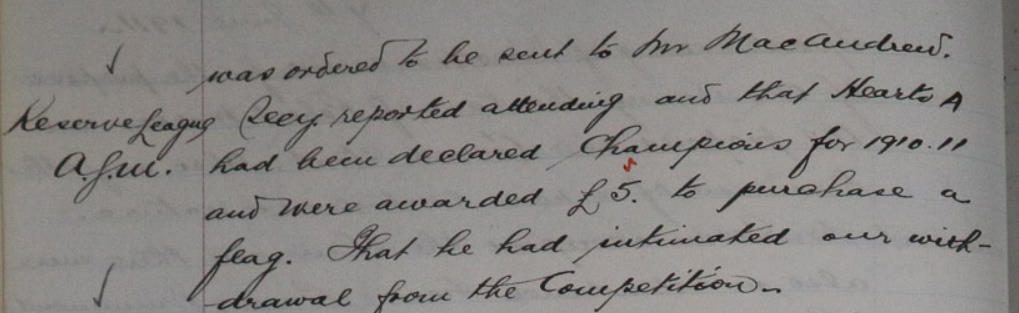 was ordered to be sent to Mr MacAndrew.
Reserve League Secy. reported attending and that Hearts A
A.G.M. had been declared Champions for 1910.11
and were awarded £5. to purchase a
flag. That he had intimated our with-
-drawal from the Competition.